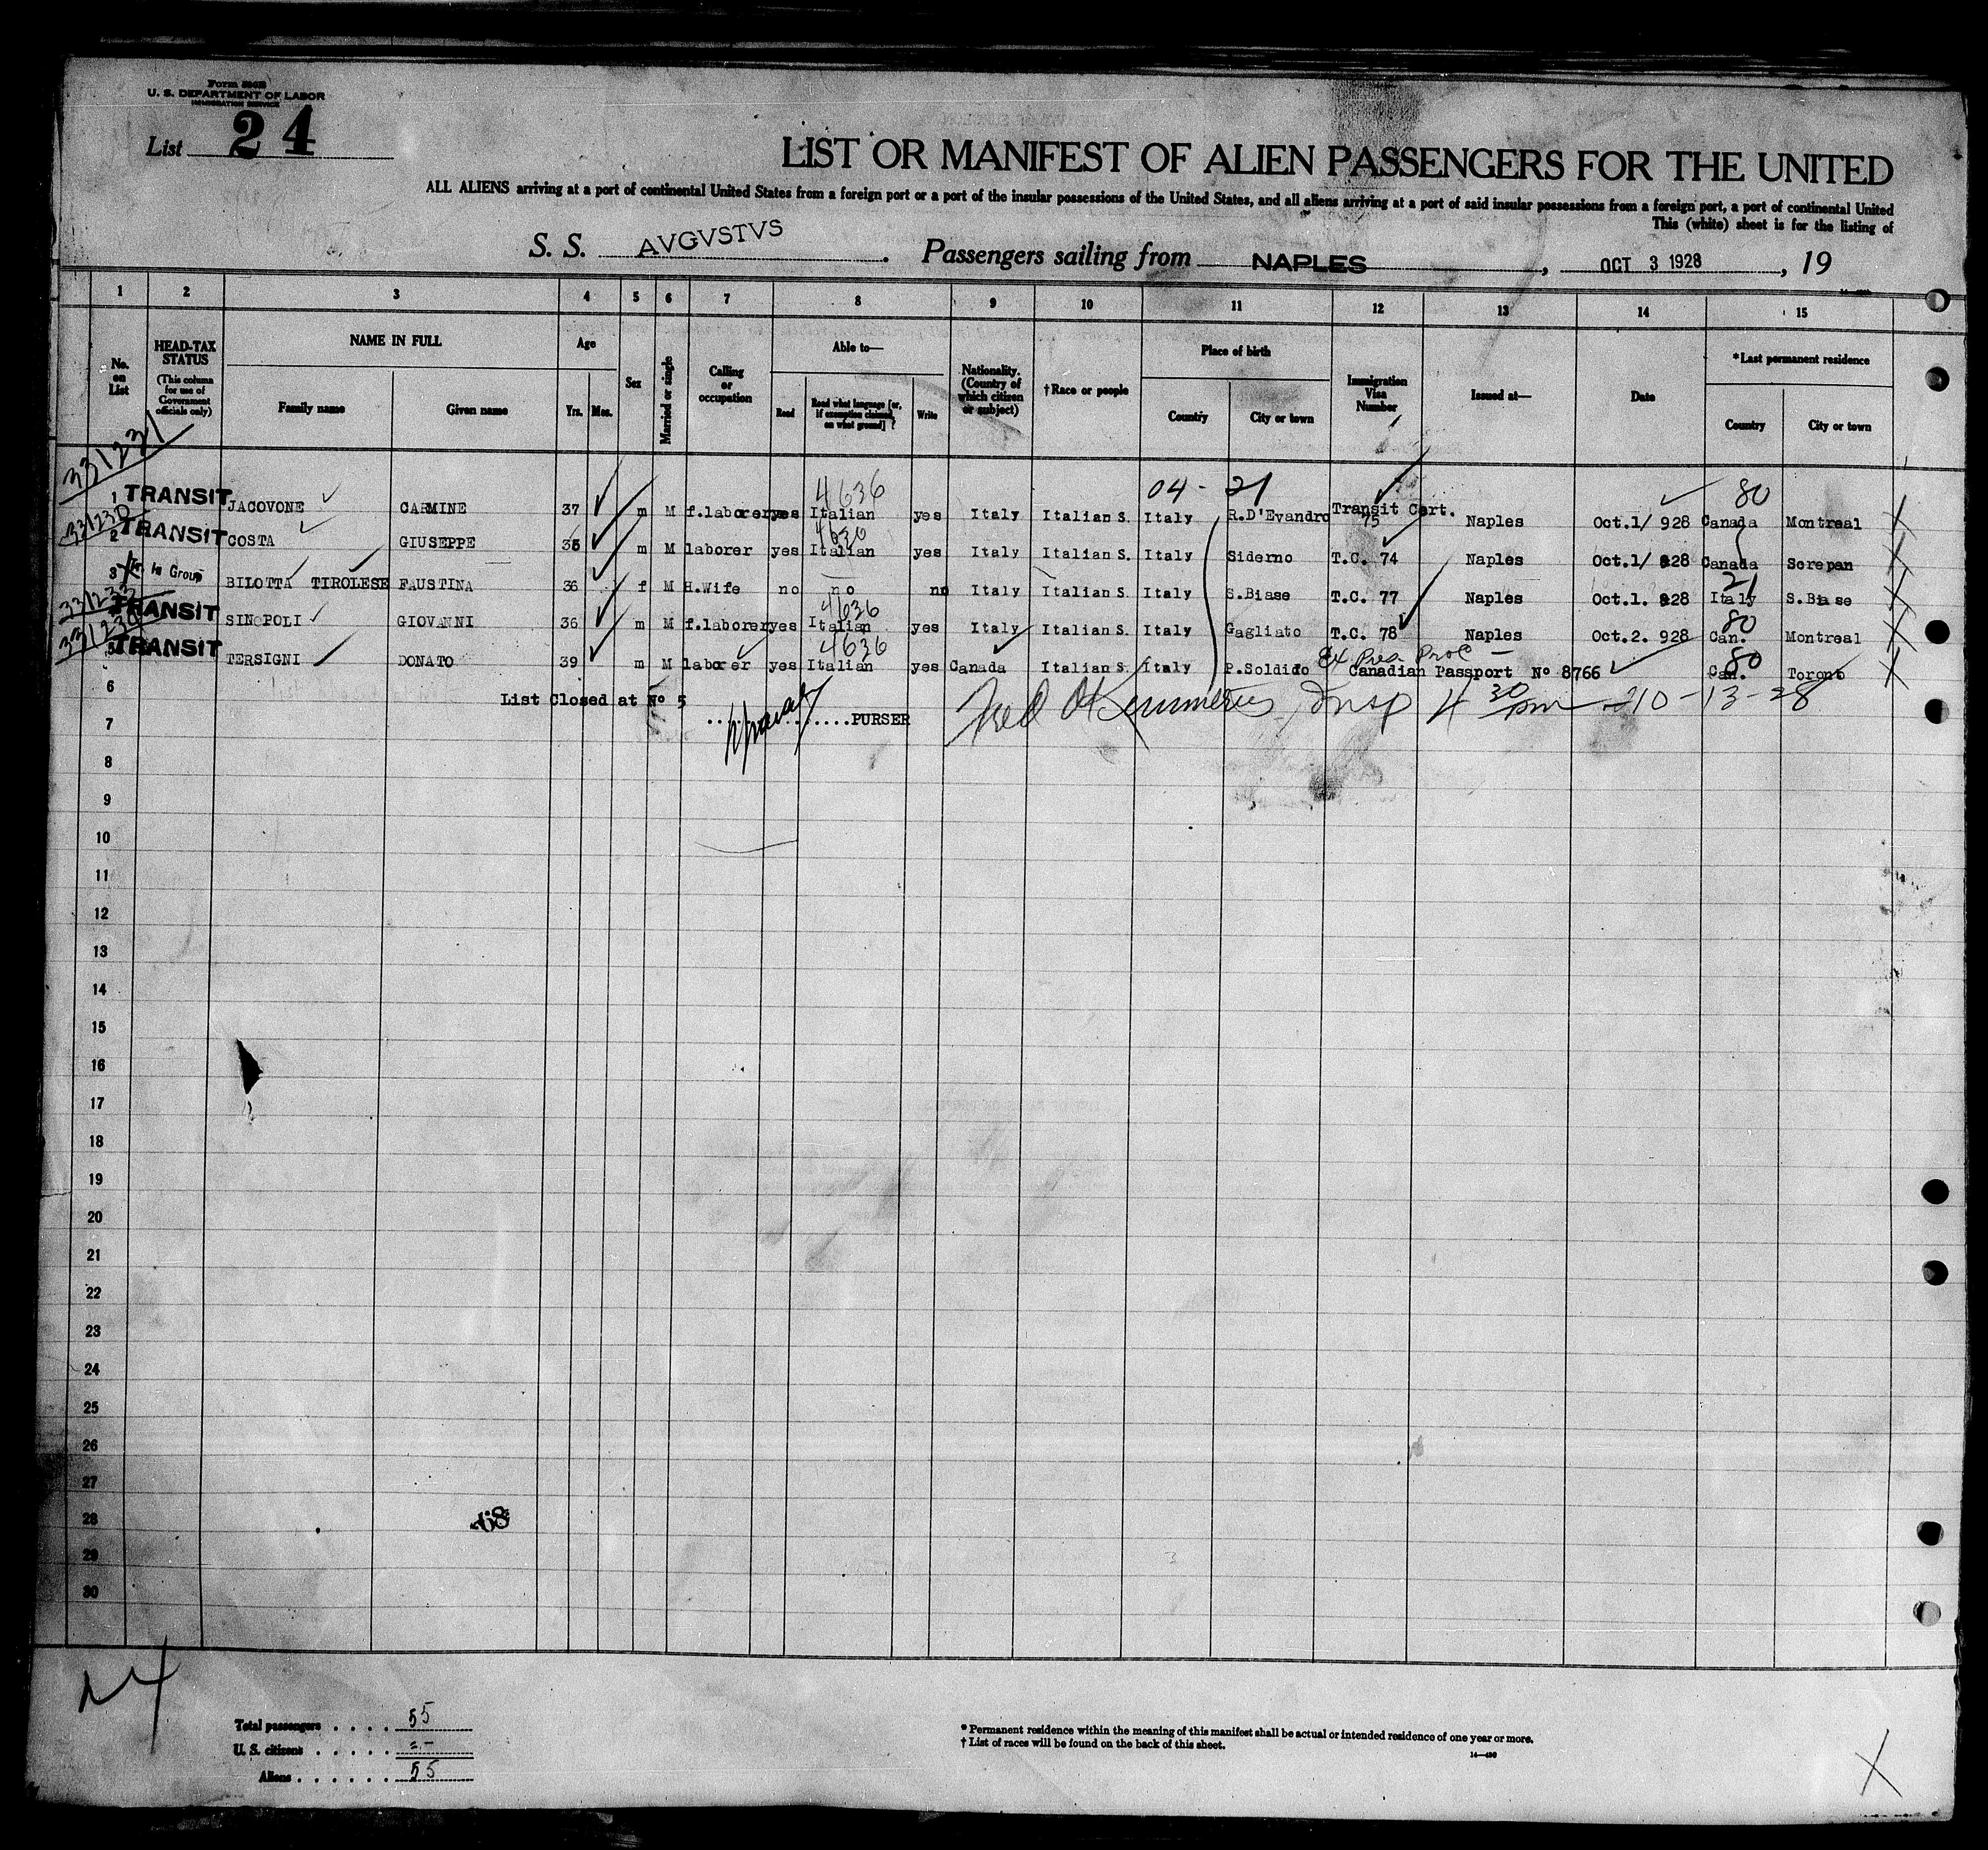 Form 500B
U. S. DEPARTMENT OF LABOR
IMMIGRATION SERVICE
List 24
LIST OR MANIFEST OF ALIEN PASSENGERS FOR THE UNITED
ALL ALIENS arriving at a port of continental United States from a foreign port or a port of the insular possessions of the United States, and all aliens arriving at a port of said insular possessions from a foreign port, a port of continental United
This (white) sheet is for the listing of
S. S. AVGVSTVS. Passengers sailing from NAPLES, OCT 3 1928, 19
1 2 3 4 5 6 7 8 9 10 11 12 13 14 15
No. on List
HEAD-TAX STATUS (This column for use of Government officials only)
NAME IN FULL Family name Given name
Age Yrs. Mos.
Sex
Married or single
Calling or occupation
Able to— Read Read what language [or, if exemption claimed, on what ground] ? Write
Nationality. (Country of which citizen or subject)
† Race or people
Place of birth Country City or town
Immigration Visa Number
Issued at—
Date
* Last permanent residence Country City or town
331231 4636 04 - 21 80
1 TRANSIT JACOVONE CARMINE 37 m M f.laborer yes Italian yes Italy Italian S. Italy R.D'Evandro Transit Cert. 75 Naples Oct.1/ 928 Canada Montreal
331232 4630
2 TRANSIT COSTA GIUSEPPE 35 m M laborer yes Italian yes Italy Italian S. Italy Siderno T.C. 74 Naples Oct.1/ 928 Canada Screpan
3 In Group BILOTTA TIROLESE FAUSTINA 36 f M H.Wife no no no Italy Italian S. Italy S.Biase T.C. 77 Naples Oct.1. 928 Italy S.Biase
21
331233 4636 80
TRANSIT SINOPOLI GIOVANNI 36 m M f.laborer yes Italian yes Italy Italian S. Italy Gagliato T.C. 78 Naples Oct.2. 928 Can. Montreal
331234 4636 80
5 TRANSIT TERSIGNI DONATO 39 m M laborer yes Italian yes Canada Italian S. Italy P.Soldido Canadian Passport No 8766 Can. Toronto
6
List Closed at No 5
PURSER
Insp 4 30 pm - 10 - 13 - 28
7
8
9
10
11
12
13
14
15
16
17
18
19
20
21
22
23
24
25
26
27
28
29
30
68
24
Total passengers . . . . 55
U. S. citizens . . . . .
Aliens . . . . . . 55
* Permanent residence within the meaning of this manifest shall be actual or intended residence of one year or more.
† List of races will be found on the back of this sheet.
14—430
X